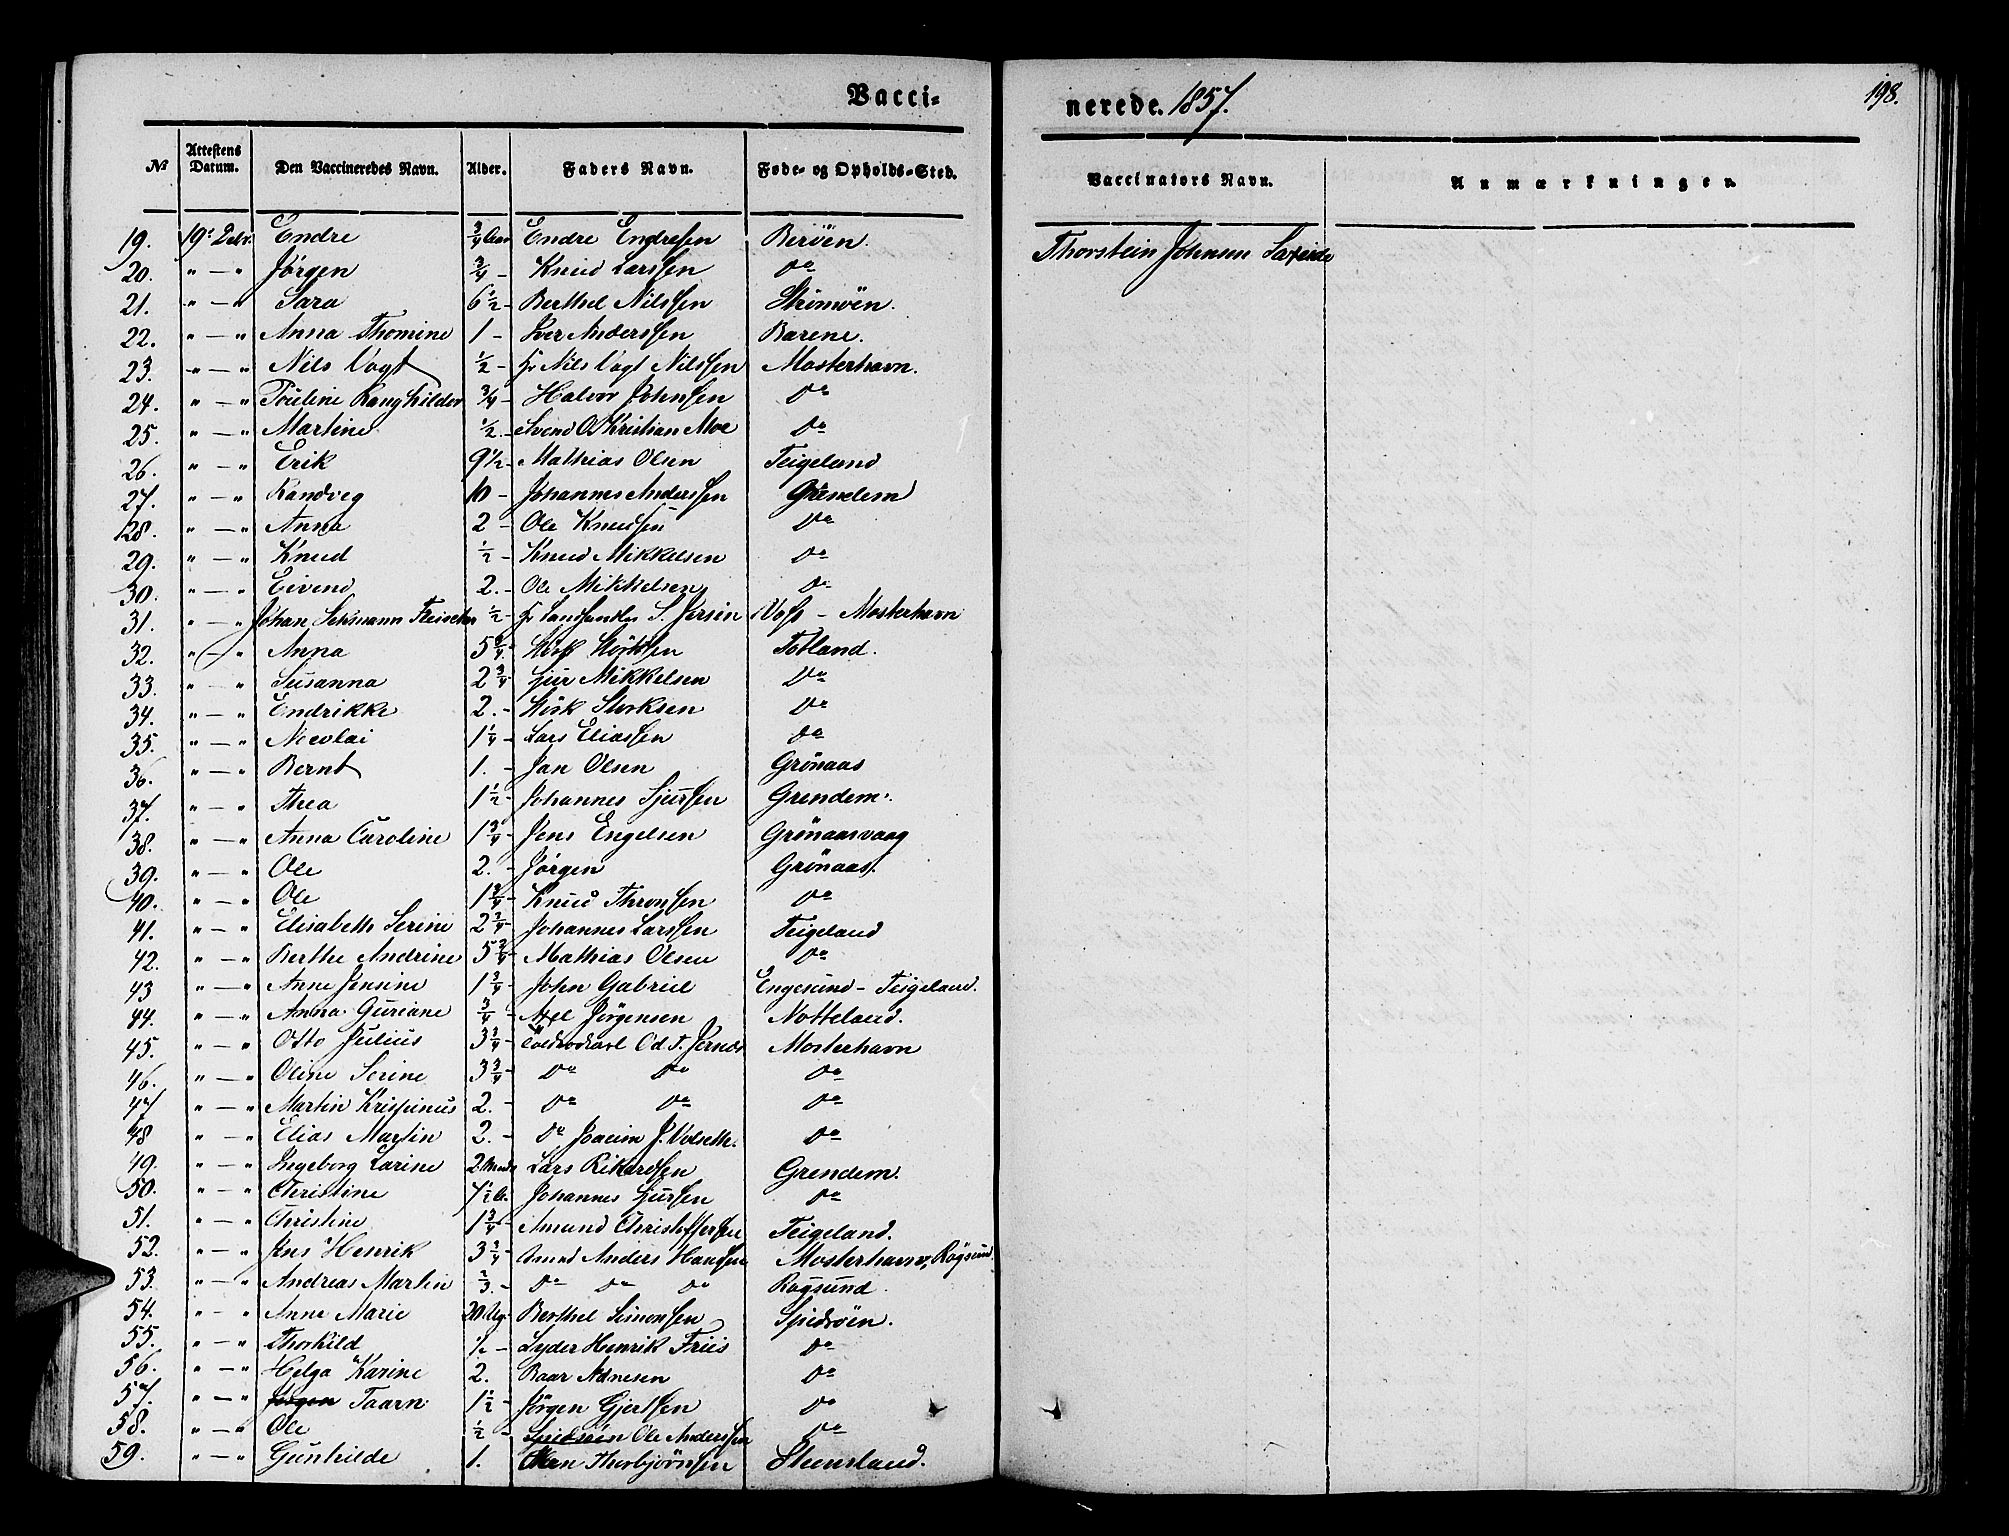 Vacci-
nerede. 1857.
198.
No Attestens Datum. Den Vaccineredes Navn. Alder. Faders Navn. Føde- og Opholds-Sted. Vaccinators Navn. Anmærkninger.
19. 19' Endre 3/4 Aar Endre Endresen Beröen. Thorstein Johnsen
20. " — " Jørgen 3/4 - Knud Larssen Do
21. " — " Sara 6 1/2 - Berthel Nilssen
22. " — " Anna Thomine 1 - Iver Anderssen Barene.
23. " — " Nils Vogt 1/2 - Hr Nils Vogt Nilssen Mosterhavn.
24. " — " 3/4 - Halvor Johnsen Do
25. " — " Martine 1/2. - Svend O. Kristian Moe Do
26. " — " Erik 9 1/2 - Mathias Olsen Teigeland
27. " — " Randveg 10 - Johannes Anderssen Grendem
28. " — " Anna 2 - Ole Knudsen Do
29. " — " Knud 1/2 - Knud Mikkelsen Do
30. " — " Eivend 2. - Ole Mikkelsen Do
31. " — " Johan Fleischer 1/2 - Hr Landhandler S. Jersin Voss - Mosterhavn
32. " — " Anna 5 3/4. Störk Störksen Totland.
33. " — " Susanna 2 3/4 - Sjur Mikkelsen Do
34. " — " Endrikke 2. - Störk Storksen Do
35. " — " Nicolai 1 1/4 - Lars Eliassen Do
36. " — " Bernt 1. - Jan Olsen Grönaas
37. " — " Thea 1 1/2 - Johannes Sjurssen Grendem.
38. " — " Anna Caroline 1 3/4 - Jens Engelsen Grönaasvaag
39. " — " Ole 2. - Jørgen Grönaas.
40. " — " Ole 1 3/4 - Knud Thronssen Do
41. " — " Elisabeth Serine 2 3/4 - Johannes Larssen Teigeland
42. " — " Berthe Andrine 5 3/4 - Mathias Olsen Do
43 " — " Anne Jensine 1 3/4 - John Gabriel Engesund - Teigeland.
44. " — " Anna Guriane 3/4 - Axel Jörgensen Notteland.
45. " — " Otto Julius 3 3/4 - Mosterhavn
46. " — " Oline Serine 3 3/4 - Do Do Do
47 " — " Martin Krispinus 2. - Do Do Do
48 " — " Elias Martin 2. - Do Joacim J. Volseth. Do
49. " — " Ingeborg Larine 2 Lars Rikardsen Grendem.
50. " — " Christine 4 1/2 A. Johannes Sjurssen Do
51. " — " Christine 1 3/4 - Amund Christoffersen Teigeland.
52. " — " Jens Henrik 3 3/4 - Anders Hanssen Mosterhavn, Røgsund.
53. " — " Andreas Martin 2/3. - Do Do Do Røgsund.
54. " — " Anne Marie 20 Ug. Berthel Simonsen Spidsöen.
55. " — " Thorkild 1/2 - Lyder Henrik Friis Do
56. " — " Helga Karine 2. Baar Adnesen Do
57. " — " Jørgen Taarn 1 1/2 - Jörgen Gjertsen Do
58. " — " Ole 1/2 - Spidsöen Ole Anderssen Do
59. " — " Gunhilde 1. Thorbjörnsen